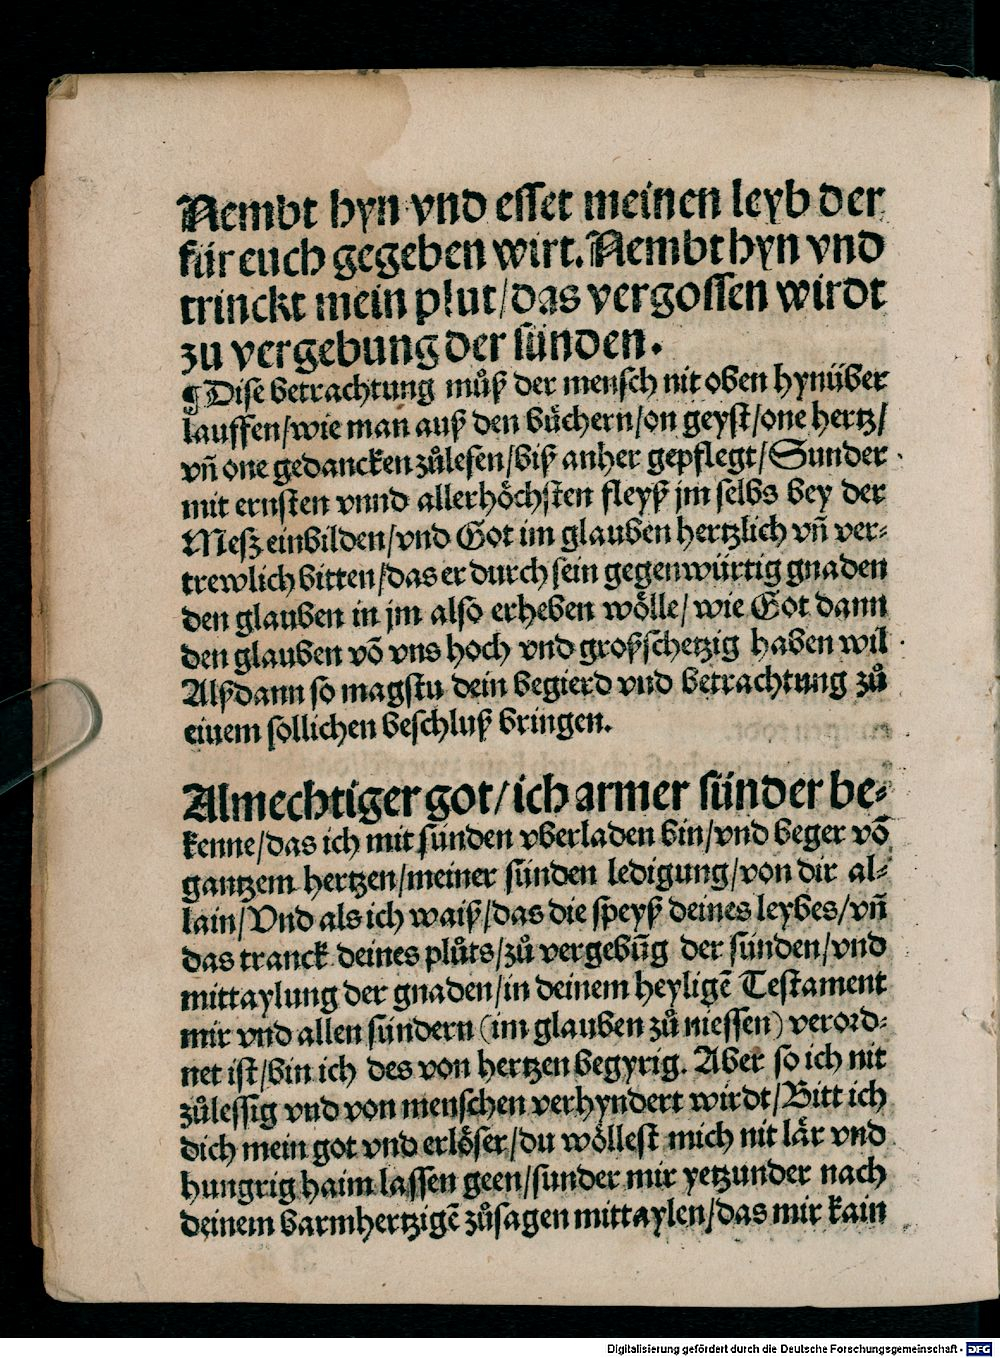 Nembt hyn vnd esset meinen leyb der
für euch gegeben wirt. Nembt hyn vnd
trinckt mein plut/das vergossen wirdt
zu vergebung der sünden.
¶ Dise betrachtung můß der mensch nit oben hynüber
lauffen/wie man auß den bůchern/on geyst/one hertz/
vñ one gedancken zůlesen/biß anher gepflegt/Sunder
mit ernsten vnnd allerhöchsten fleyß jm selbs bey der
Mesz einbilden/vnd Got im glauben hertzlich vñ ver-
trewlich bitten/das er durch sein gegenwürtig gnaden
den glauben in jm also erheben wölle/wie Got dann
den glauben võ vns hoch vnd großschetzig haben wil
Alßdann so magstu dein begierd vnd betrachtung zů
einem sollichen beschluß bringen.
Almechtiger got/ich armer sünder be-
kenne/das ich mit sünden vberladen bin/vnd beger võ
gantzem hertzen/meiner sünden ledigung/von dir al-
lain/Vnd als ich waiß/das die speyß deines leybes/vñ
das tranck deines plůts/zů vergebũg der sünden/vnd
mittaylung der gnaden/in deinem heyligẽ Testament
mir vnd allen sündern (im glauben zů niessen) verord-
net ist/bin ich des von hertzen begyrig. Aber so ich nit
zůlessig vnd von menschen verhyndert wirdt/Bitt ich
dich mein got vnd erlöser/du wöllest mich nit lär vnd
hungrig haim lassen geen/sunder mir yetzunder nach
deinem barmhertzigẽ zůsagen mittaylen/das mir kain
Digitalisierung gefördert durch die Deutsche Forschungsgemeinschaft - DFG